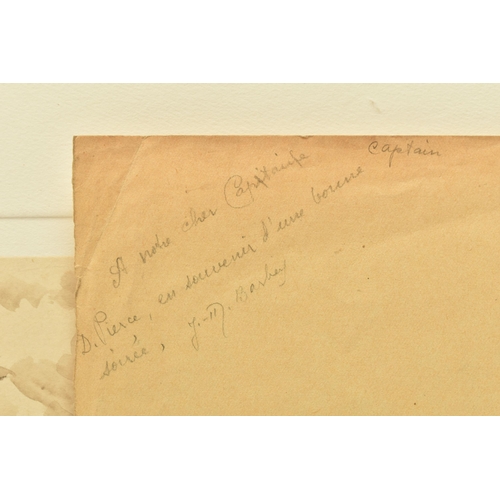 A notre cher Capitaine
Captain
D. Pierce, en souvenir d'une bonne
soirée, J.-M. Barbey